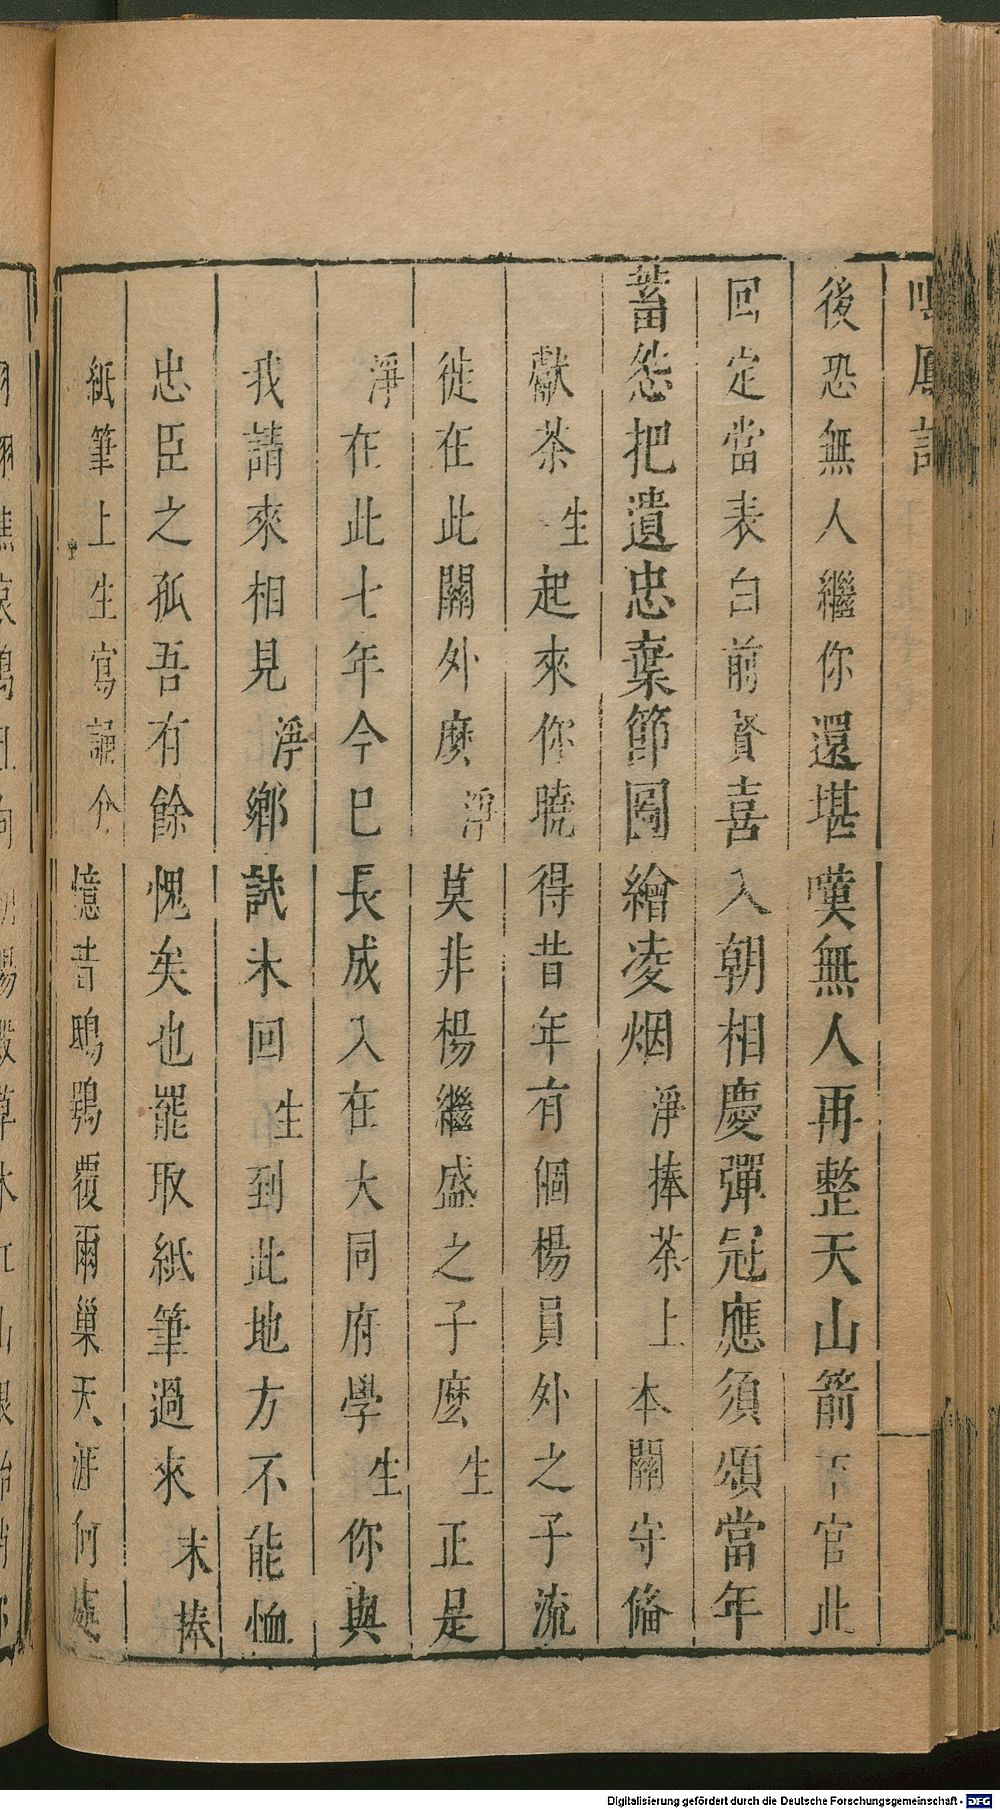 鳴鳳記
後恐無人繼你還堪嘆無人再整天山箭下官此
回定當表白前賢喜入朝相慶彈冠應須頌當年
蓄怨把遺忠棄節圖繪凌烟淨捧茶上本關守俻
獻茶生起來你曉得昔年有個楊員外之子流
徙在此關外麽淨莫非楊繼盛之子麽生正是
淨在此七年今巳長成入在大同府學生你與
我請來相見淨鄉試未回生到此地方不能恤
忠臣之孤吾有餘愧矣也罷取紙筆過來末捧
紙筆上生寫調介憶昔鴟鴞覆爾巢天涯何處
Digitalisierung gefördert durch die Deutsche Forschungsgemeinschaft - DFG